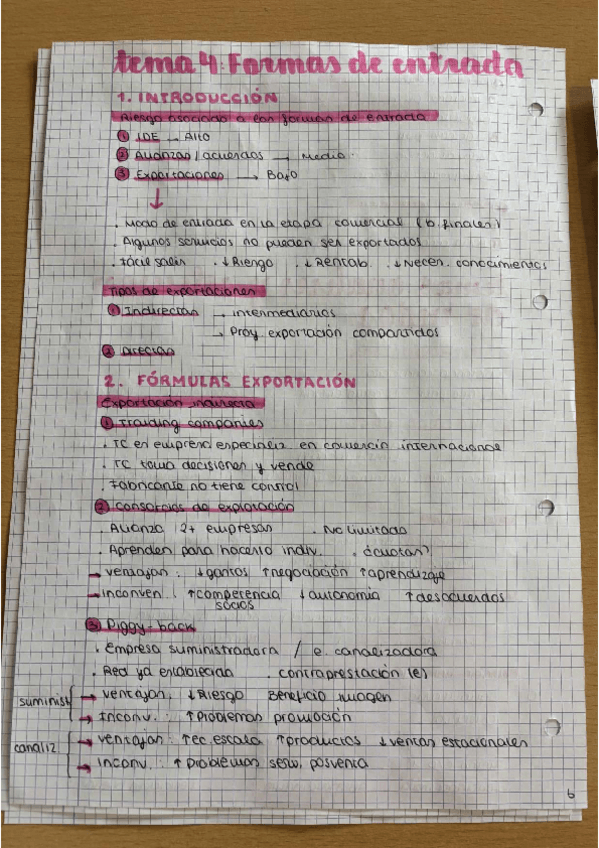 tema 4: Formas de entrada
1. INTRODUCCIÓN
Riesgo asociado a las formas de entrada
① IDE → Alto
② Alianzas / acuerdos → Medio
③ Exportaciones → Bajo
↓
. Modo de entrada en la etapa comercial (b. finales)
. Algunos servicios no pueden ser exportados
. Fácil salir . ↓ Riesgo . ↓ Rentab. . ↓ Neces. conocimientos
Tipos de exportaciones
① Indirectas → intermediarios
→ Proy. exportación compartidos
② Directas
2. FÓRMULAS EXPORTACIÓN
Exportación indirecta
① Traiding companies
. TC es empresa especializ. en comercio internacional
. TC toma decisiones y vende
. Fabricante no tiene control
② Consorcios de exploración
. Alianza 2+ empresas . No limitado
. Aprenden para hacerlo indiv.
→ ventajas: ↓ gastos ↑ negociación ↑ aprendizaje
→ inconven.: ↑ competencia socios ↓ autonomía ↑ desacuerdos
③ Piggy-back
. Empresa suministradora / e. canalizadora
. Red ya establecida . contraprestación (€)
suminist → ventajas: ↓ Riesgo Beneficio imagen
→ Inconv.: ↑ Problemas promoción
canaliz → ventajas: ↑ ec. escala ↑ productos ↓ ventas estacionales
→ Inconv.: ↑ problemas serv. posventa
6